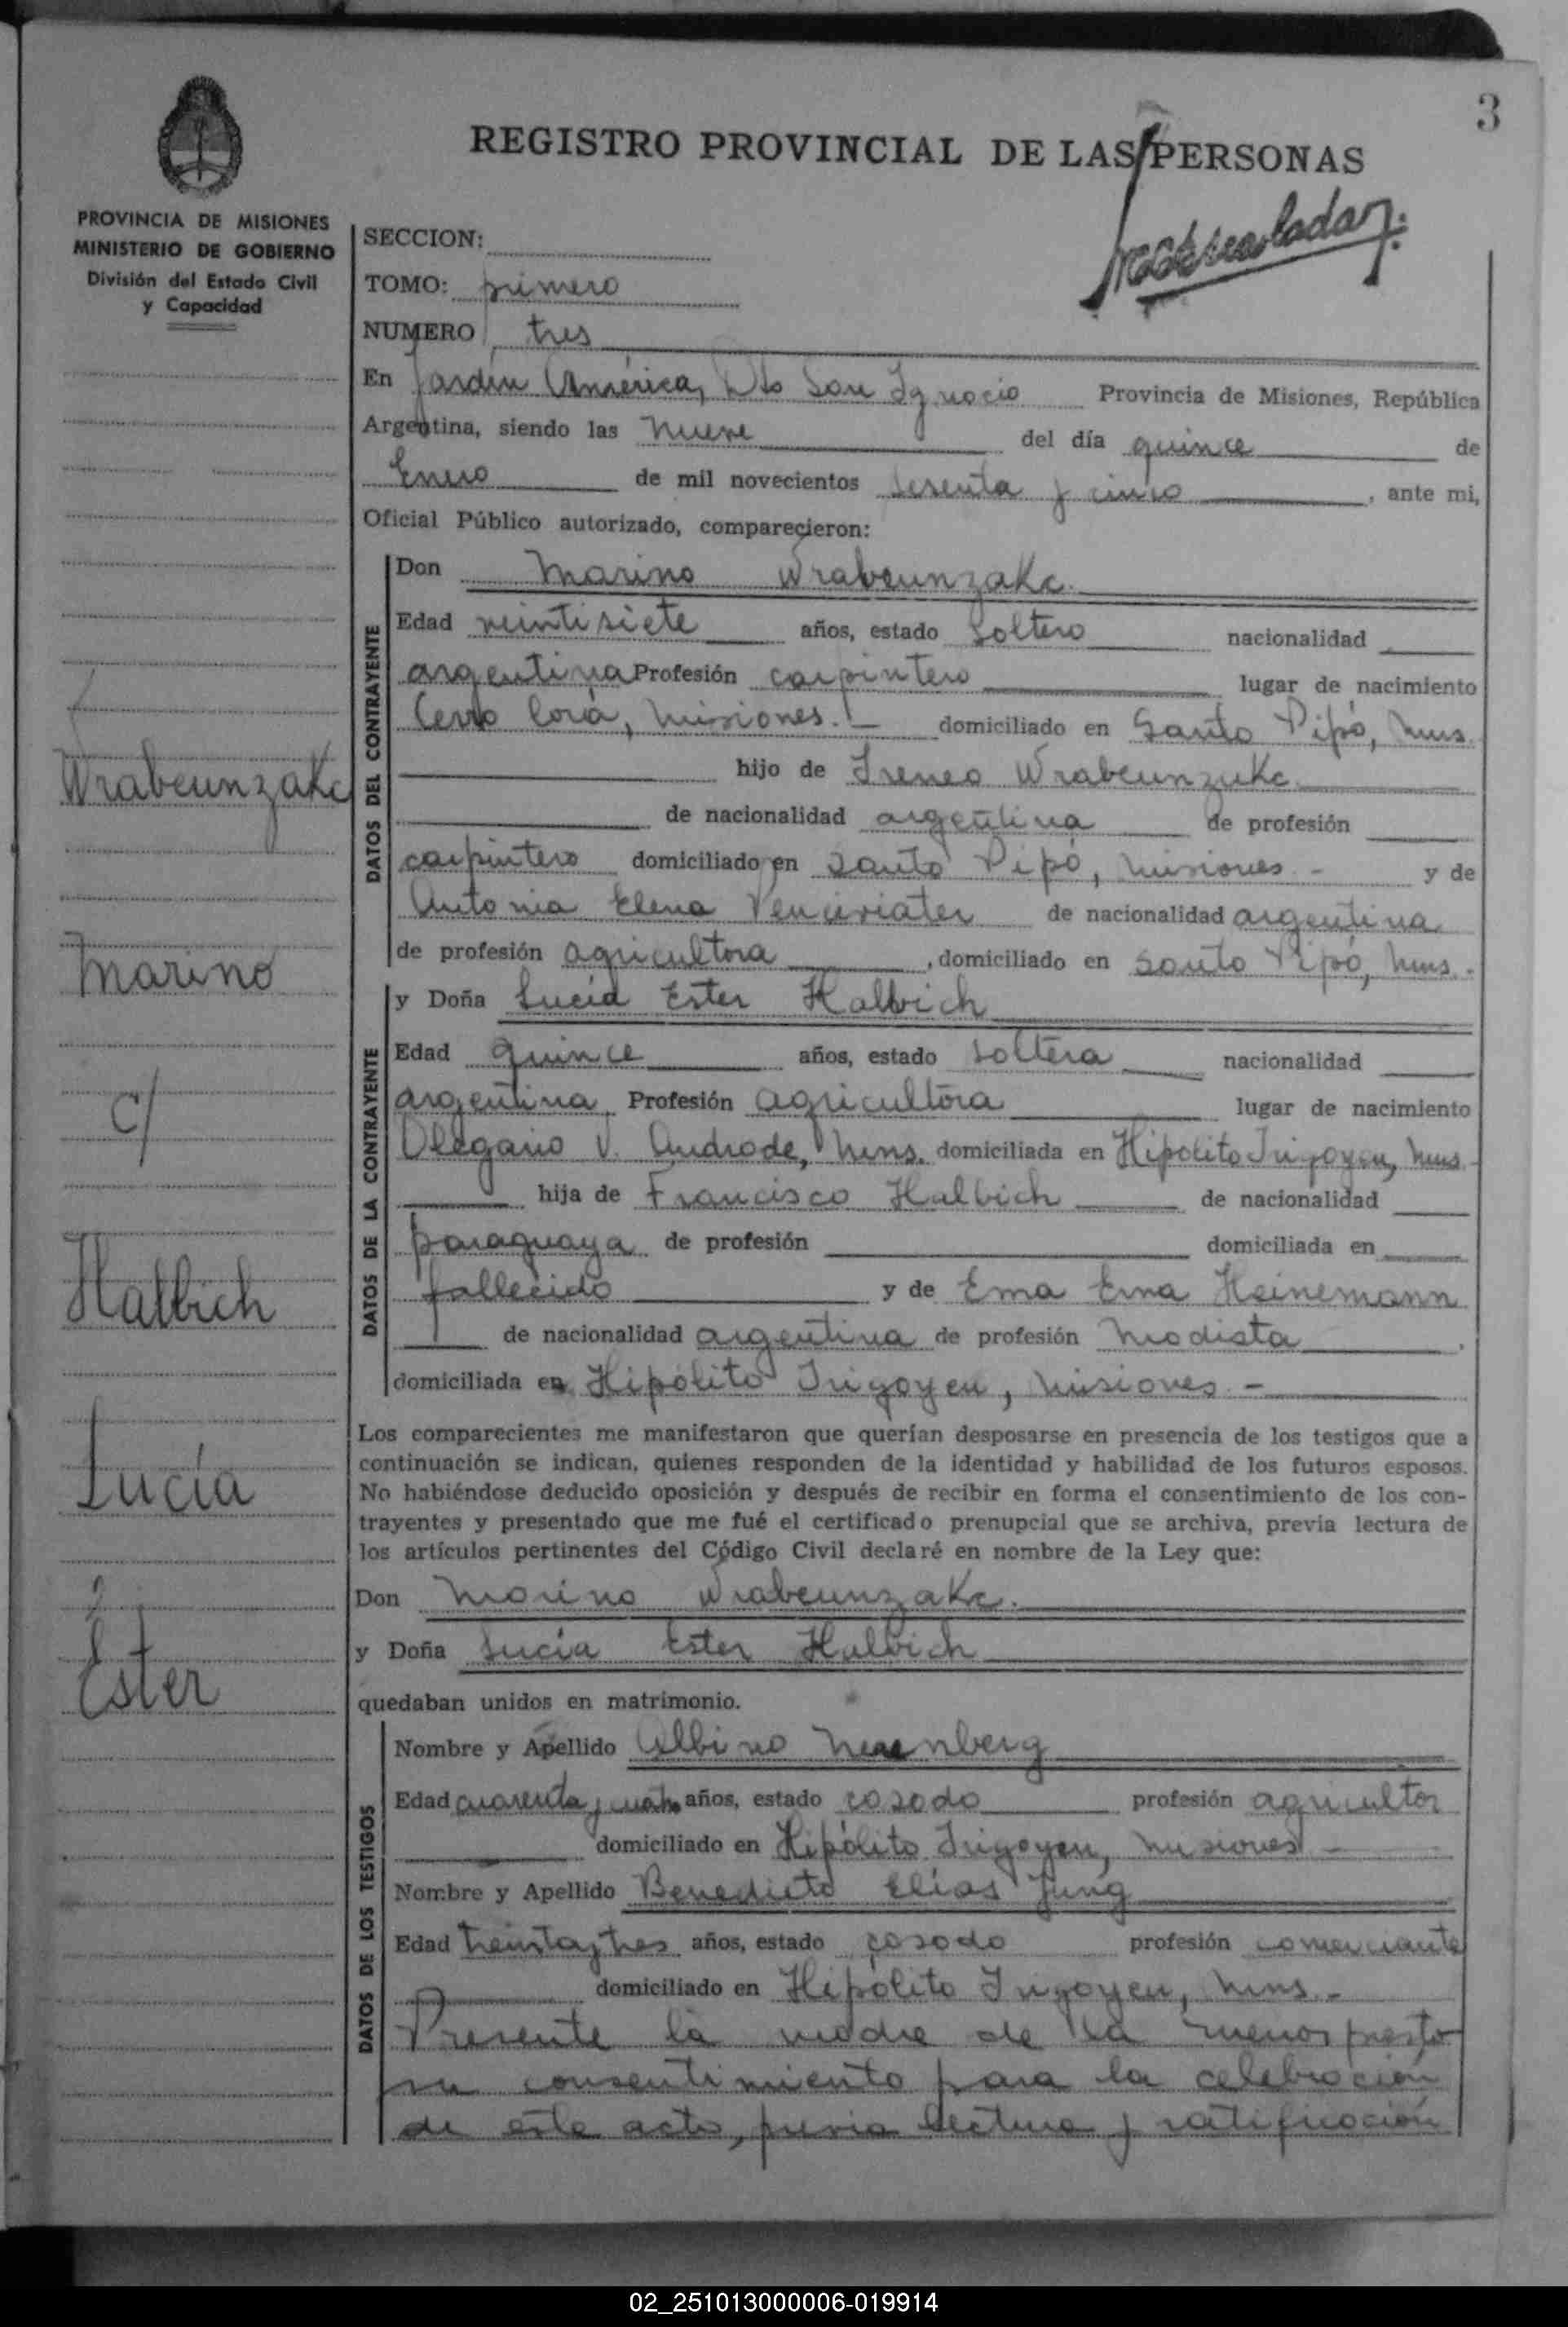 3
REGISTRO PROVINCIAL DE LAS PERSONAS
PROVINCIA DE MISIONES
MINISTERIO DE GOBIERNO
División del Estado Civil
y Capacidad
SECCION:
TOMO: primero
NUMERO tres
En Jardín América, Dto San Ignacio Provincia de Misiones, República
Argentina, siendo las nueve del día quince de
Enero de mil novecientos sesenta y cinco, ante mi,
Oficial Público autorizado, comparecieron:
DATOS DEL CONTRAYENTE
Don Marino Wrabeunzakc.
Edad veintisiete años, estado soltero nacionalidad
argentina Profesión carpintero lugar de nacimiento
Cerro Corá, Misiones. - domiciliado en Santo Pipó, Mnes.
hijo de Ireneo Wrabeunzukc
de nacionalidad argentina de profesión
carpintero domiciliado en Santo Pipó, Misiones - y de
Antonia Elena de nacionalidad argentina
de profesión agricultora, domiciliado en Santo Pipó, Mns.
DATOS DE LA CONTRAYENTE
y Doña Lucía Ester Halbich
Edad quince años, estado soltera nacionalidad
argentina Profesión agricultora lugar de nacimiento
Olegario V. Andrade, Mns. domiciliada en Hipólito Irigoyen, Mns.
hija de Francisco Halbich de nacionalidad
paraguaya de profesión domiciliada en
fallecido y de Ema Erna Heinemann
de nacionalidad argentina de profesión modista.
domiciliada en Hipólito Irigoyen, Misiones. -
Los comparecientes me manifestaron que querían desposarse en presencia de los testigos que a
continuación se indican, quienes responden de la identidad y habilidad de los futuros esposos.
No habiéndose deducido oposición y después de recibir en forma el consentimiento de los con-
trayentes y presentado que me fué el certificado prenupcial que se archiva, previa lectura de
los artículos pertinentes del Código Civil declaré en nombre de la Ley que:
Don Marino Wrabeunzakc.
y Doña Lucía Ester Halbich
quedaban unidos en matrimonio.
DATOS DE LOS TESTIGOS
Nombre y Apellido Albino
Edad cuarenta y cuatro años, estado casado profesión agricultor
domiciliado en Hipólito Irigoyen, Misiones -
Nombre y Apellido Benedicto Elías Jung
Edad treinta y tres años, estado casado profesión comerciante
domiciliado en Hipólito Irigoyen, Mns. -
Presente la madre de la menor presto
su consentimiento para la celebración
de este acto, previa lectura y ratificación
Wrabeunzakc
Marino
c/
Halbich
Lucía
Ester
02_251013000006-019914